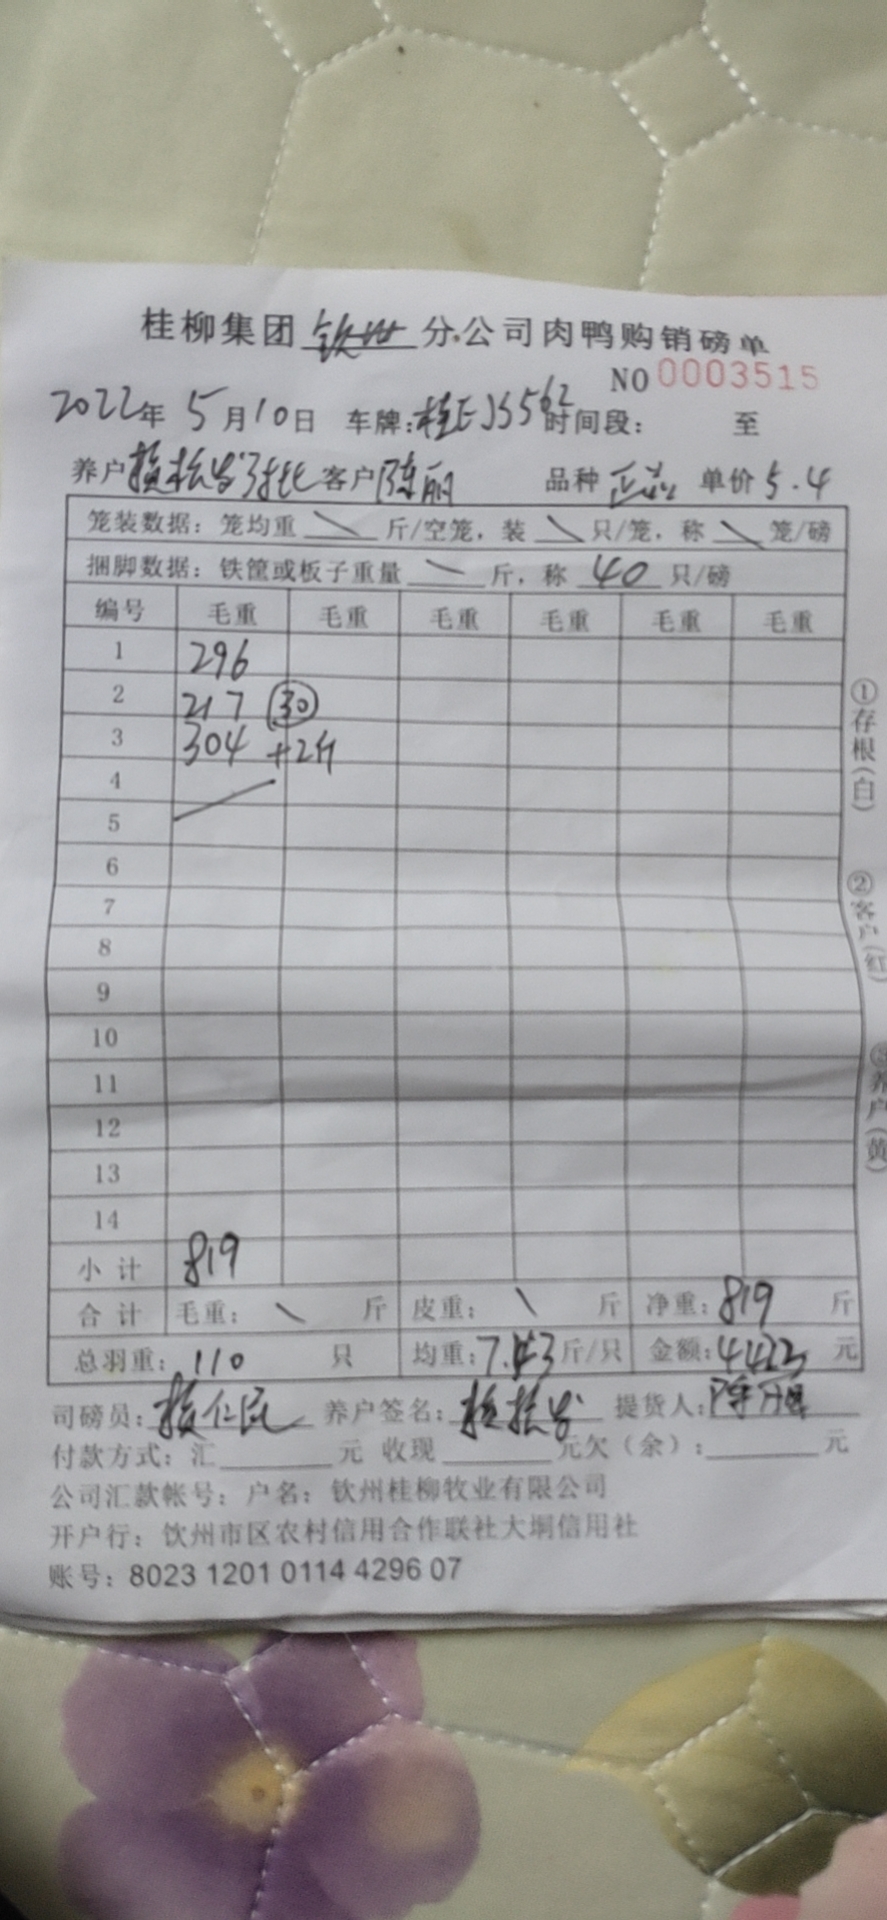 桂柳集团 钦州 分公司肉鸭购销磅单
NO 0003515
2022年 5月10日 车牌:桂EJS562 时间段: 至
养户 客户 陈丽 品种 正品 单价 5.4
笼装数据：笼均重 \ 斤/空笼，装 \ 只/笼，称 \ 笼/磅
捆脚数据：铁筐或板子重量 \ 斤，称 40 只/磅
编号 毛重 毛重 毛重 毛重 毛重 毛重
1 296
2 217 30
3 304 +2斤
4
5
6
7
8
9
10
11
12
13
14
小计 819
合计 毛重： \ 斤 皮重： \ 斤 净重：819 斤
总羽重：110 只 均重：7.43斤/只 金额：4423 元
司磅员： 养户签名： 提货人：陈丽
付款方式：汇 元 收现 元欠（余）： 元
公司汇款帐号：户名：钦州桂柳牧业有限公司
开户行：钦州市区农村信用合作联社大垌信用社
账号：8023 1201 0114 4296 07
①存根（白）
②客户（红）
③养户（黄